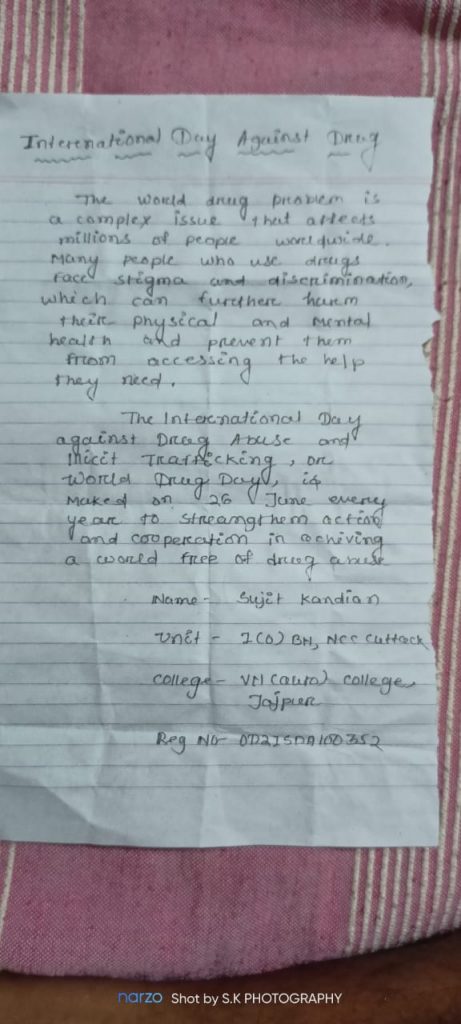 International Day Against Drug
The world drug problem is
a complex issue that affects
millions of people worldwide.
Many people who use drugs
face stigma and discrimination,
which can further harm
their physical and mental
health and prevent them
from accessing the help
they need.
The International Day
against Drug Abuse and
Illicit Trafficking, or
World Drug Day, is
Maked on 26 June every
year to streangthem action
and cooperation in achiving
a world free of drug abuse
Name - Sujit Kandian
Unit - 1(O) BN, NCC Cuttack
College - VN (auto) College,
Jajpur
Reg No -
narzo Shot by S.K PHOTOGRAPHY